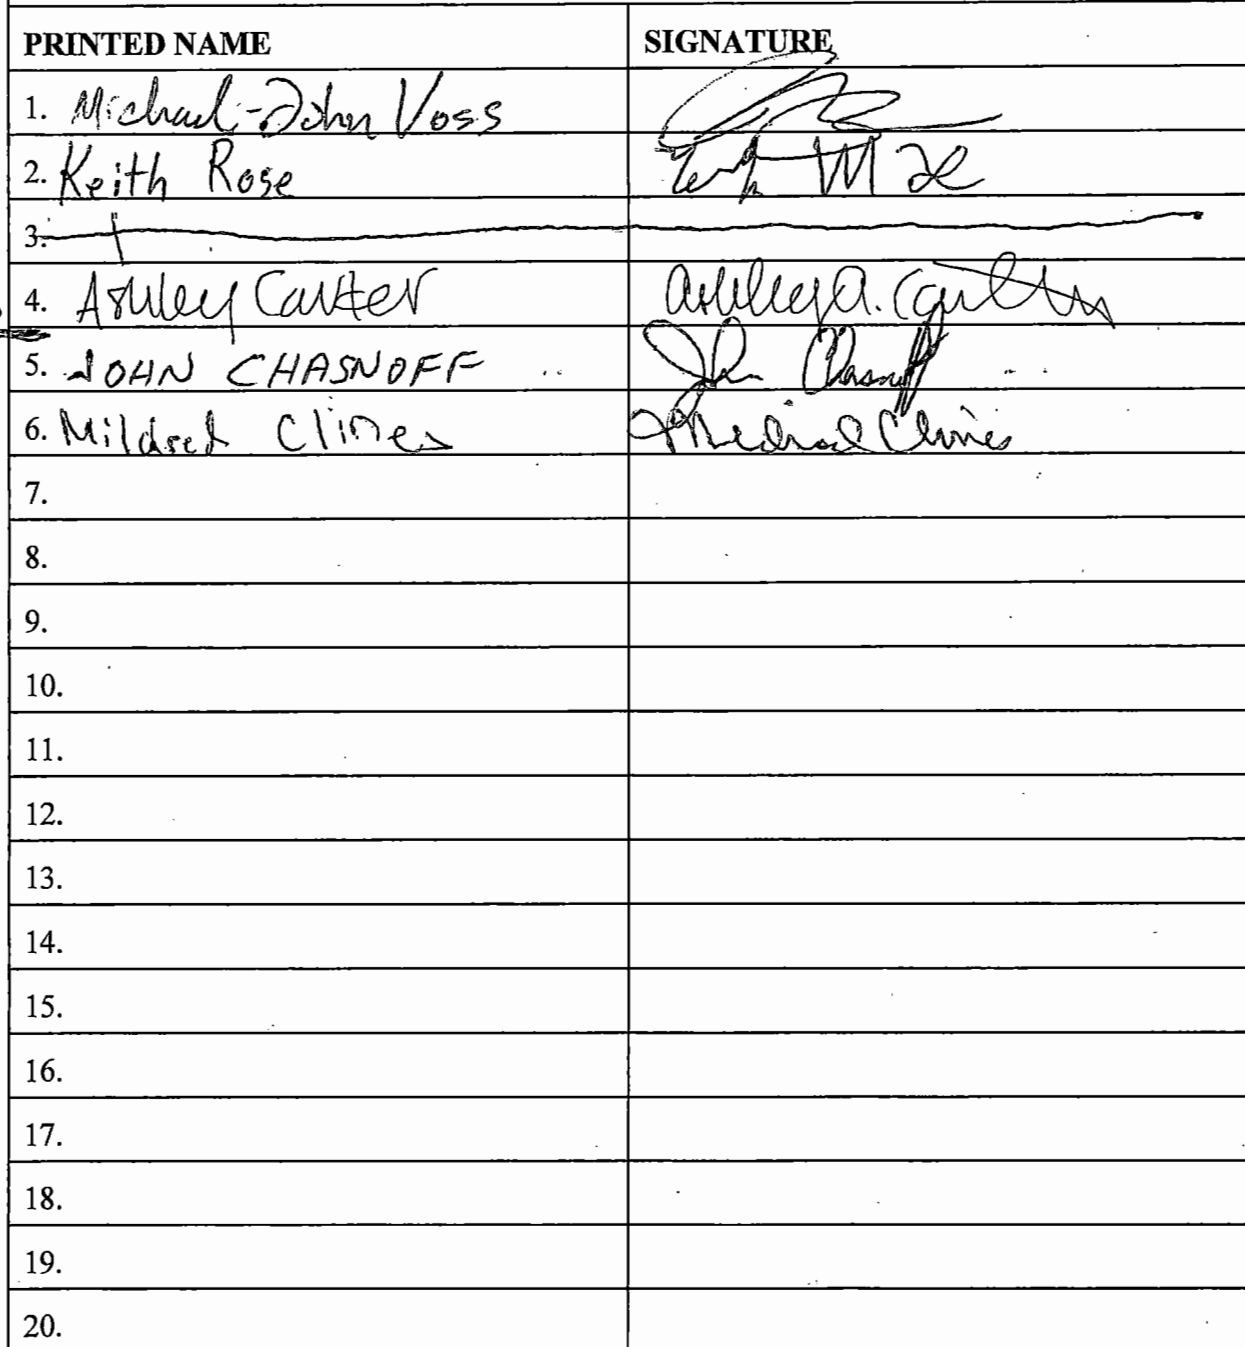 PRINTED NAME SIGNATURE
1. Michael-John Voss
2. Keith Rose
3.
4. Ashley Carter Ashley A. Carter
5. JOHN CHASNOFF John Chasnoff
6. Mildred Clines Mildred Clines
7.
8.
9.
10.
11.
12.
13.
14.
15.
16.
17.
18.
19.
20.